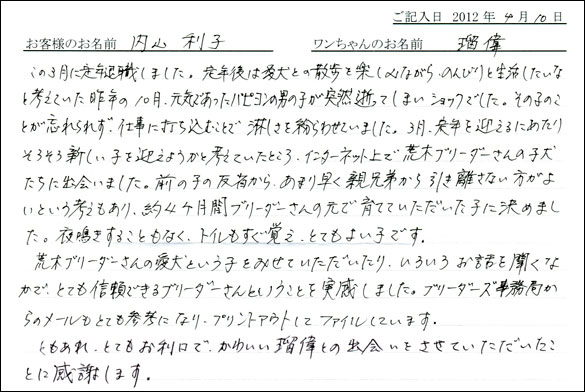 ご記入日 2012年4月10日
お客様のお名前 内山 利子 ワンちゃんのお名前 瑠偉
この3月に定年退職しました。定年後は愛犬との散歩を楽しみながら、のんびりと生活したいな
と考えていた昨年の10月、元気であったパピヨンの男の子が突然逝ってしまいショックでした。その子のこ
とが忘れられず、仕事に打ち込むことで淋しさを紛らわせていました。3月、定年を迎えるにあたり
そろそろ新しい子を迎えようかと考えていたところ、インターネット上で荒木ブリーダーさんの子犬
たちに出会いました。前の子の反省から、あまり早く親兄弟から引き離さない方がよ
いという考えもあり、約4ヶ月間ブリーダーさんの元で育てていただいた子に決めまし
た。夜鳴きすることもなく、トイレもすぐ覚え、とてもよい子です。
荒木ブリーダーさんの愛犬という子をみせていただいたり、いろいろお話を聞くな
かで、とても信頼できるブリーダーさんということを実感しました。ブリーダーズ事務局か
らのメールもとても参考になり、プリントアウトしてファイルしています。
ともあれ、とてもお利口で、かわいい瑠偉との出会いをさせていただいたこ
とに感謝します。